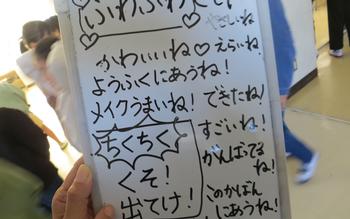 ふわふわことば
やさしいね
かわいいね♡えらいね!
ようふくにあうね!
メイクうまいね!できたね!
すごいね!
がんばってるね!
このかばんにあうね!
ちくちく
くそ!
出てけ!